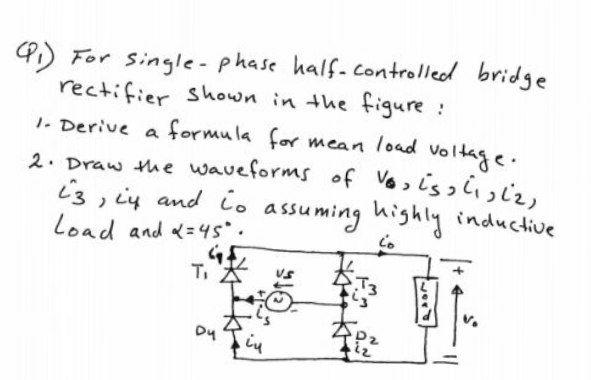 Q1) For single-phase half-controlled bridge
rectifier shown in the figure :
1- Derive a formula for mean load voltage.
2. Draw the waveforms of Vo, is, i1, i2,
i3, i4 and io assuming highly inductive
Load and α=45°.
io
i1
T1
vs
T3
i3
+
Load
+
~
-
is
vo
D4
i4
D2
i2
-